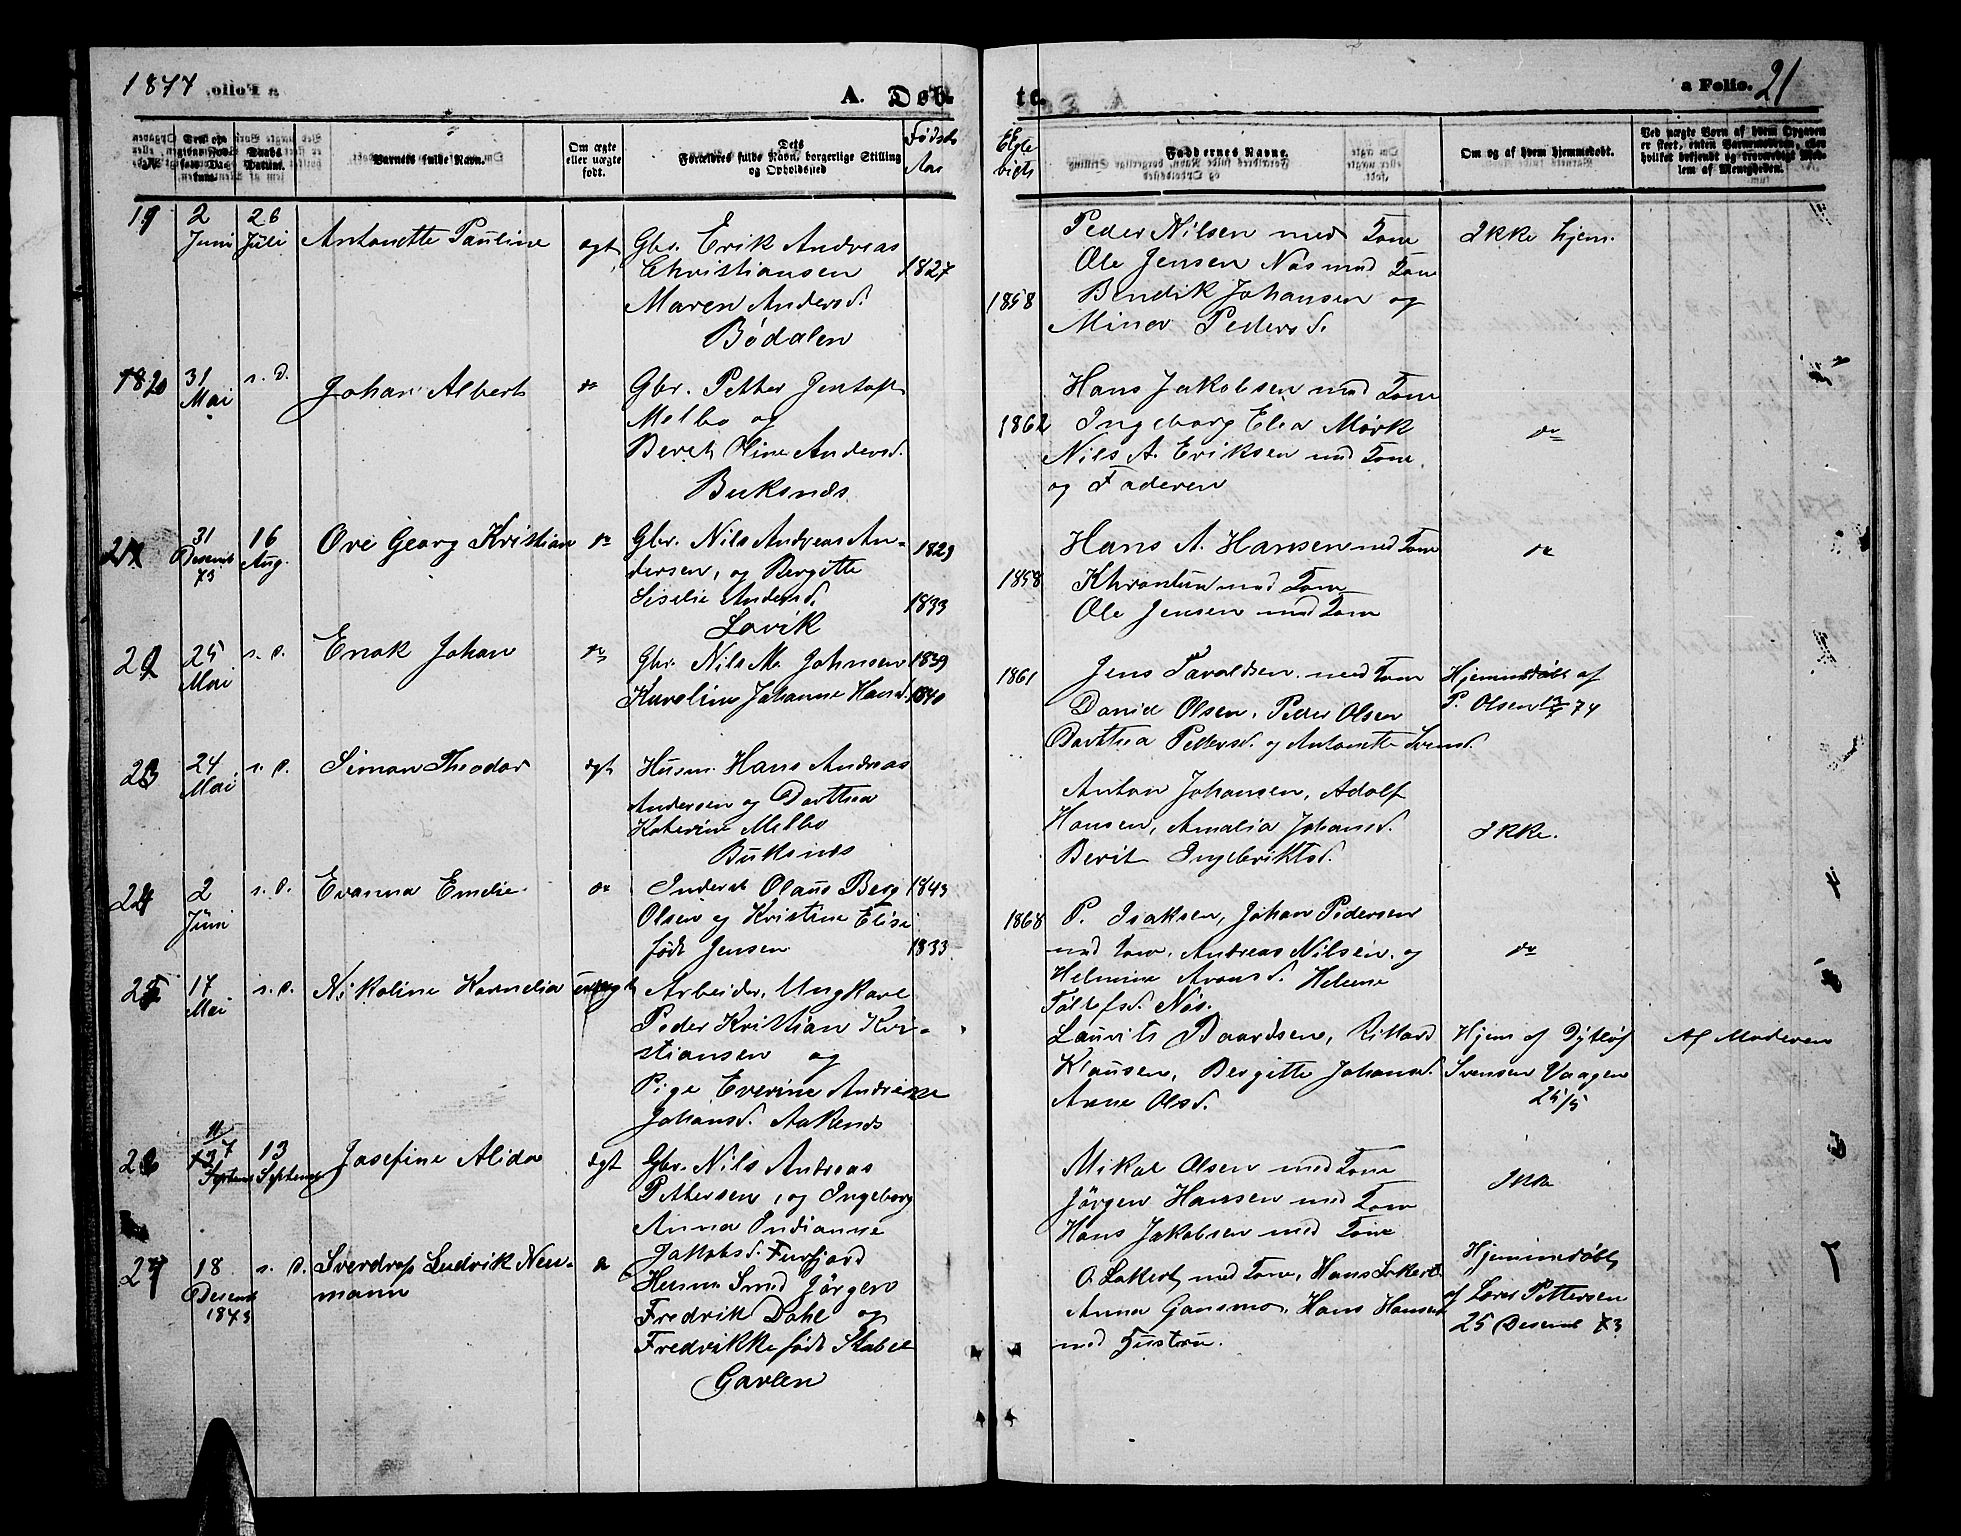 1874
A. Døb
te.
a Folio. 21
Varnets fulde Navn.
Om ægte
eller uægte
født.
Dets
Forældres fulde Navn, borgerlige Stilling
og Opholdssted
Føds
Aar
Ægte
vigts
Faddernes Navne.
Om og af hvem hjemmedøbt.
Ved uægte Børn af hvem Opgaven
er skeet, enten Barnemoderen, eller
hvilket bekjendt og troværdigt Med-
lem af Menigheden.
19
2
Juni
26
Juli
Antonette Pauline
ægt
Gbr. Erik Andreas
Christiansen
1827
Maren Andersd.
Bødalen
1858
Peder Nilsen med Kone
Ole Jensen Nøs med Kone
Bendik Johansen og
Mina Pedersd.
Ikke hjem.
20
31
Mai
s. d.
Johan Albert
do
Gbr. Petter Jentoft
Melbo og
Beret Oline Andersd.
Buksnæs
1862
Hans Jakobsen med Kone
Ingeborg Elea Mørk
Nils A. Eriksen med Kone
og Faderen
do
21
31
Desemb
73
16
Aug.
Ove Georg Kristian
do
Gbr. Nils Andreas An-
dersen, og Bergitte
1829
Siselie Andersd.
1833
Lovik
1858
Hans A. Hansen med Kone
med Kone
Ole Jensen med Kone
do
22
25
Mai
s. d.
Enok Johan
do
Gbr. Nils M. Johnsen
1839
Karoline Johanne Hansd.
1840
1861
Jens Taraldsen med Kone
Daniel Olsen, Peder Olsen
Dorthea Pedersd. og Antonette Svensd.
Hjemmedøbt af
P. Olsen 74
23
24
Mai
s. d.
Simon Theodor
ægt
Husm. Hans Andreas
Andersen og Dorthea
Katerine Melbo
Buksnæs
Anton Johansen, Adolf
Hansen, Amalia Johansd.
Berit Ingebriktsd.
Ikke.
24
2
Juni
s. d.
Evanna Emelie
do
Inderst Olaus Berg
1843
Olsen og Kristine Elise
født Jensen
1833
1868
P. Isaksen, Johan Pedersen
med Kone, Andreas Nilsen og
Helmine Aronsd. Helene
Tollefsd. Nøs.
do
25
17
Mai
s. d.
Nikoline Kornelia
uægt
Arbeider, Ungkarl
Peder Kristian Kri-
stiansen og
Pige Everine Andrea
Johansd. Aakenes
Laurits Baardsen, Rikard
Klausen, Bergitte Johansd.
Anne Olsd.
Hjem af Dytlof
Svensen Vaagen
25/5
Af Moderen
26
7
Septemb
13
September
Josefine Alida
ægt
Gbr. Nils Andreas
Pettersen, og Ingeborg
Anna Indianne
Jakobsd. Finfjord
Mikal Olsen med Kone
Jørgen Hansen med Kone
Hans Jakobsen med Kone
Ikke
27
18
Desemb
1873
s. d.
Sverdrup Ludvik Neu-
mann
Husm. Smed Jørgen
Fredrik Dahl og
Fredrikke født Stabel
Gavlen
O. Lokert med Kone, Hans Lokert
Anna Gansmo, Hans Hansen
med Hustru.
Hjemmedøbt
af Lærer Pettersen
25 Desemb 73